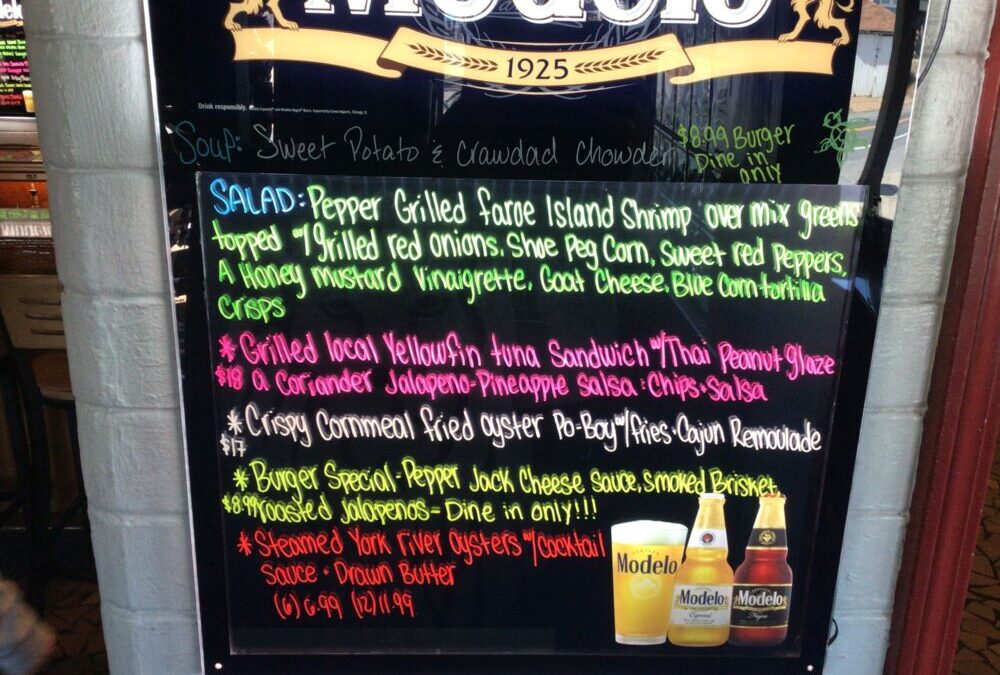 Modelo
1925
Drink responsibly.
Soup: Sweet Potato & Crawdad Chowder
$8.99 Burger
Dine in
only
SALAD: Pepper Grilled faroe Island Shrimp over mix greens
topped w/grilled red onions, Shoe Peg Corn, Sweet red Peppers,
A Honey mustard Vinaigrette, Goat Cheese, Blue Corn tortilla
Crisps
* Grilled local Yellowfin tuna Sandwich w/Thai Peanut glaze
$18 a Coriander Jalapeno-Pineapple Salsa · Chips · Salsa
* Crispy Cornmeal fried oyster Po-Boy w/fries · Cajun Remoulade
$17
* Burger Special - Pepper Jack Cheese Sauce, smoked Brisket,
$8.99 roasted Jalapenos - Dine in only!!!
* Steamed York river oysters w/cocktail
Sauce · Drawn Butter
(6) 6.99 (12) 11.99
Modelo
Modelo
Especial
Modelo
Negra